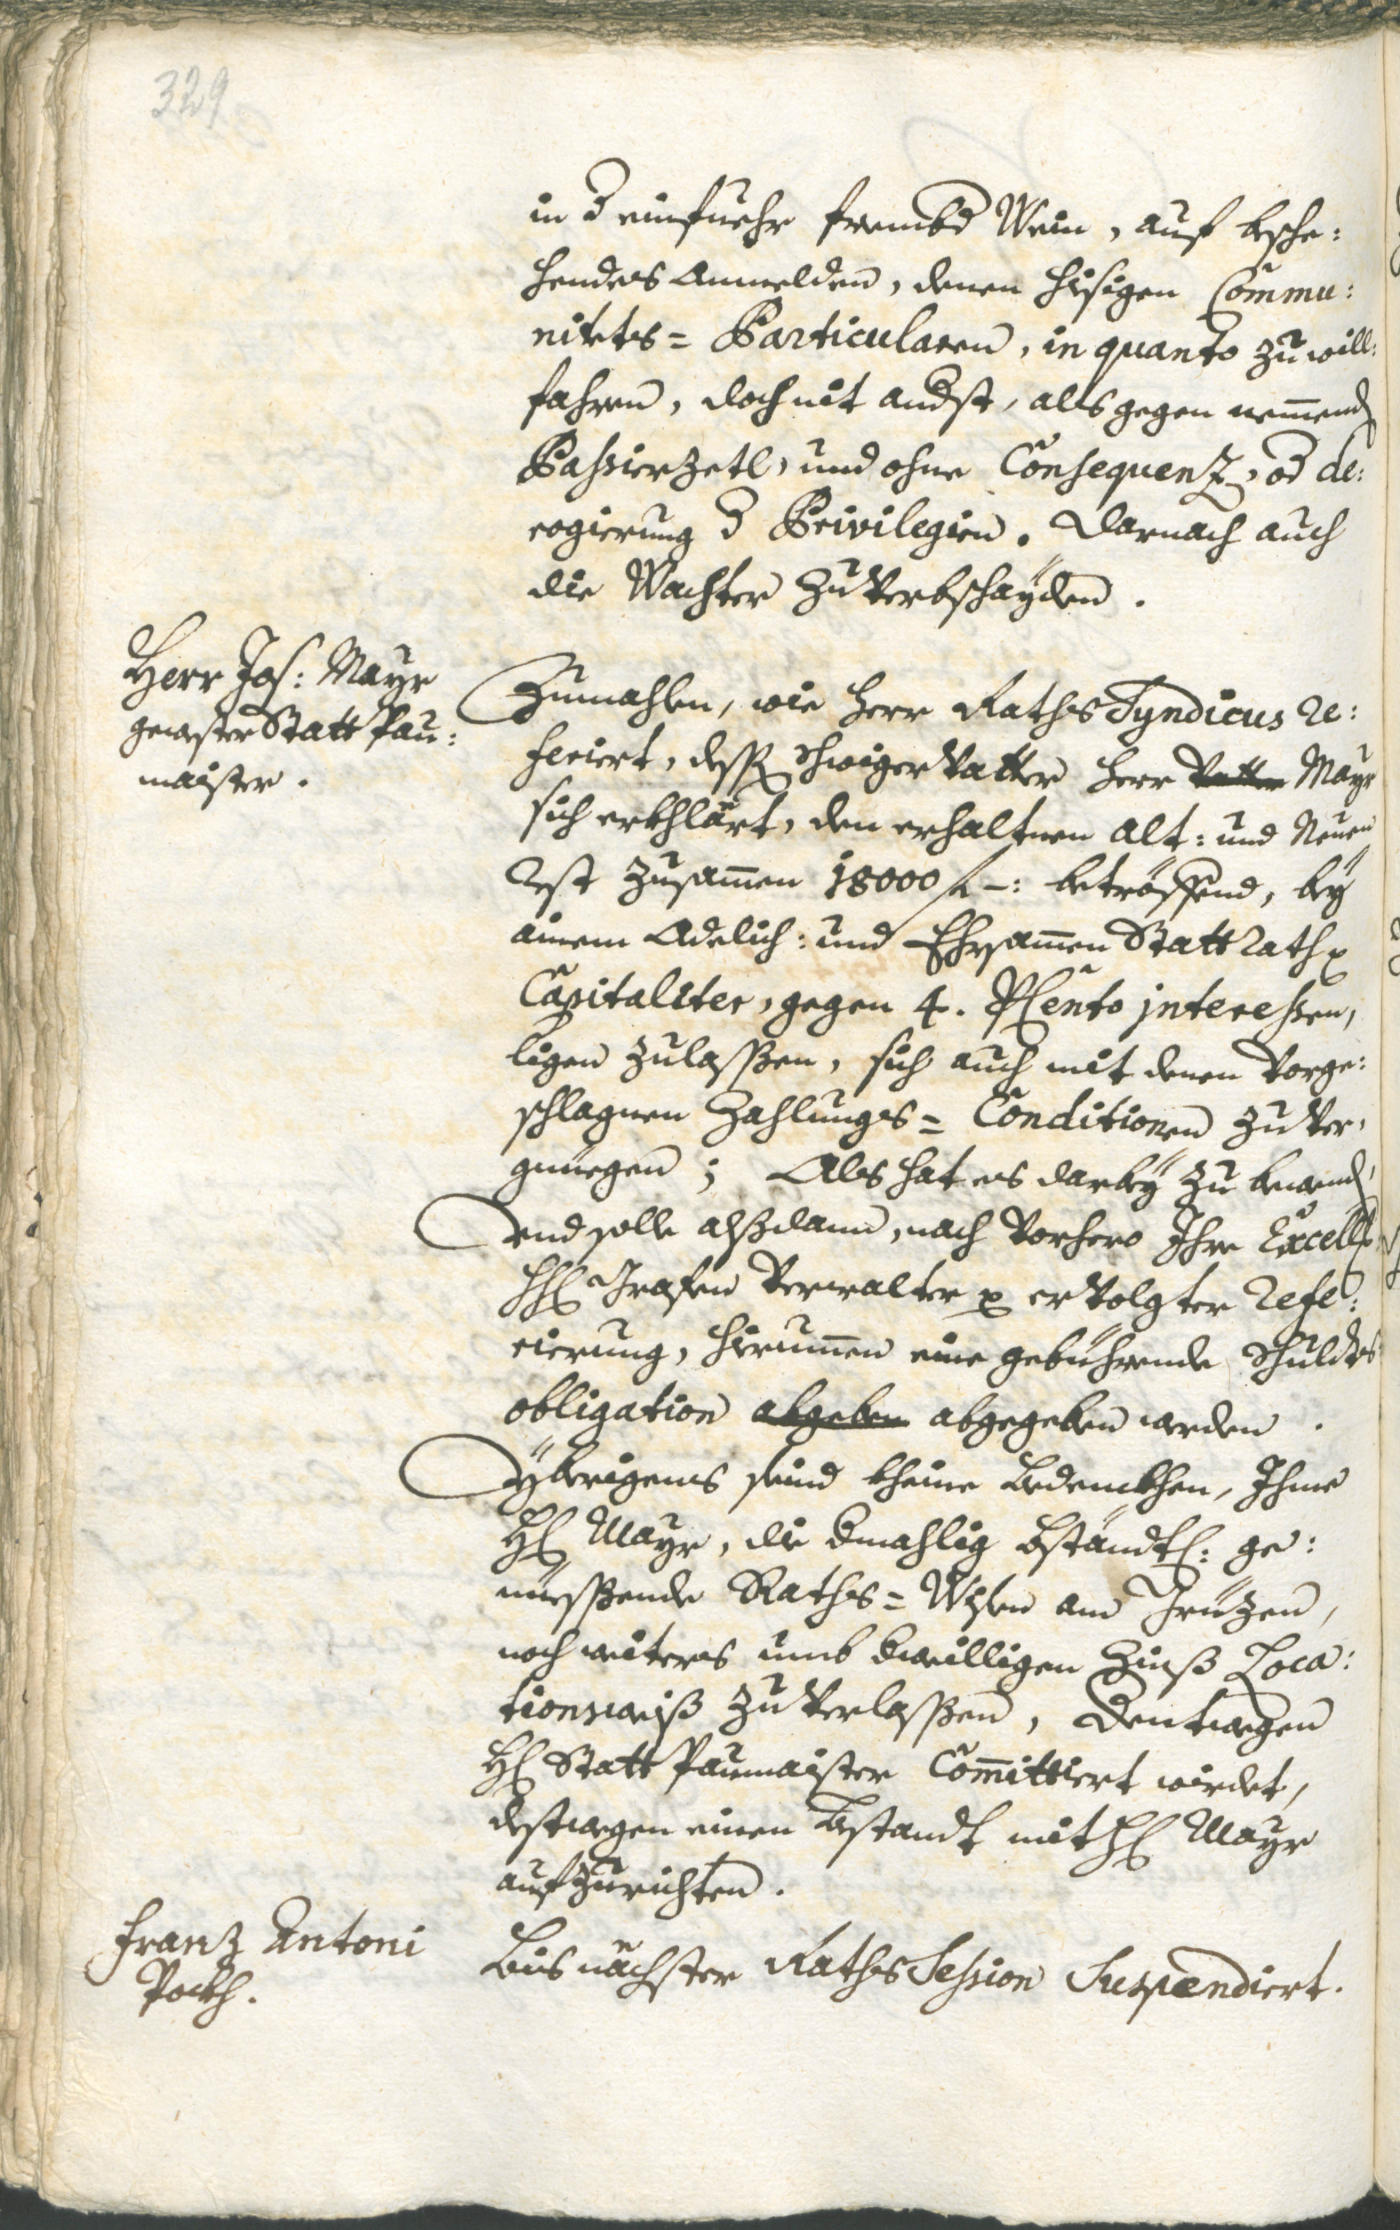 329
in d einfuehr frembd Wein, auf besche:
hendes Anmelden, denen hisigen Commu:
nitets= Particularen, in quanto zu will:
fahren, doch nit andst, als gegen nemend
Passierzetl, und ohne Consequenz, od de:
rogierung d Privilegien. Darnach auch
die Wachter zu verbschayden.
Herr Jos: Mayr
gewester Statt Pau:
maister.
Zumahlen, wie Herr Raths Syndicus re:
feriert, dessen Schwiger Vatter Herr Vatter Mayr
sich erkhlärt, den erhaltnen Alt: und Neuen
Rest zusamen 18000 f –: betröffend, bey
ainem Adelich: und Ehrsamen Statt Rath
Capitaliter, gegen 4. PCento interessen,
ligen zulassen, sich auch mit denen vorge:
schlagnen Zahlungs= Conditionen zu ver:
gnüegen; Als hat es darbey zu bewend,
und solle alßdann, nach vorhero Ihre Excell
HH Grafen Verwalter erfolgter refe:
rierung, hierumen eine gebührende Schuldts
obligation abgeben abgegeben werden.
Ybrigens seind kheine bedenkhen, Ihme
HH Mayr, die dmahlig bständtl: ge:
nüessende Raths= Wisen am Grüzen,
noch weiters umb dwilligen Zinß Loca:
tionsweiß zu verlassen, dentwegen
HH Statt Paumaister Committiert wirdet,
destwegen einen Bstandt mit HH Mayr
aufzurichten.
Franz Antoni
Pockh.
Bis nächster Raths Session Suspendiert.